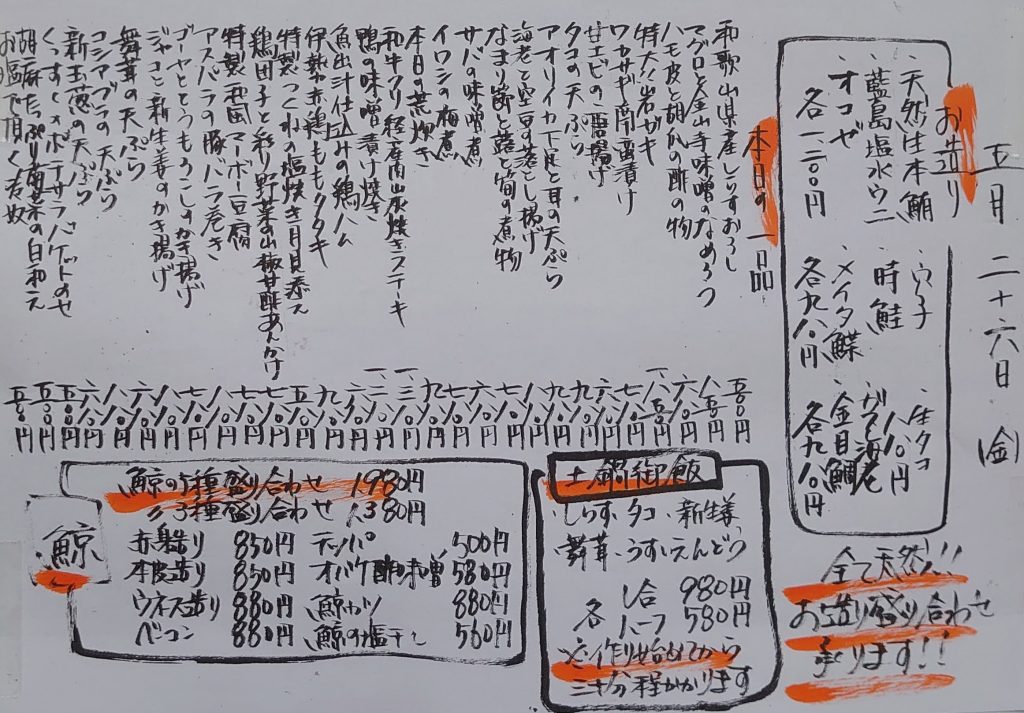 五月二十六日(金)
お造り
・天然生本鮪
・藍島塩水ウニ
・オコゼ
各一二〇〇円
・穴子
・時鮭
・メイタ鰈
各九八〇円
・生タコ
八八〇円
・ガス海老
・金目鯛
各九八〇円
全て天然!!
お造り盛り合わせ
承ります!!
本日の一品
和歌山県産しらすおろし 五〇〇円
マグロと金山寺味噌のなめろう
ハモ皮と胡瓜の酢の物
特大!岩ガキ
ワカサギ南蛮漬け
甘エビの唐揚げ
タコの天ぷら
アオリイカ下足と耳の天ぷら
海老と空豆の落とし揚げ
なまり節と蕗と筍の煮物
サバの味噌煮
イワシの梅煮
本日の荒炊き
鴨の味噌漬け焼き
和牛クリ 経産肉山炭焼きステーキ
魚出汁仕込みの鶏ハム
伊勢赤鶏ももタタキ
特製つくねの塩焼き月見添え
鶏団子と彩り野菜の山椒甘酢あんかけ
特製和風マーボー豆腐
アスパラの豚バラ巻き
ゴーヤととうもろこしのかき揚げ
ジャコと新生姜のかき揚げ
舞茸の天ぷら
コシアブラの天ぷら
新玉葱の天ぷら
くっすくポテサラバケットのせ
胡麻たっぷり青菜の白和え
お塩で頂く若奴
土鍋御飯
しらす・タコ・新生姜
舞茸・うすいえんどう
各 一合 980円
ハーフ 580円
※作り始めてから
三十分程かかります
鯨
鯨の5種盛り合わせ 1980円
〃3種盛り合わせ 1,380円
赤身造り 850円
本皮造り 850円
ウネス造り 880円
ベーコン 880円
テッパ 500円
オバケ酢味噌 580円
鯨カツ 880円
鯨の塩干し 560円